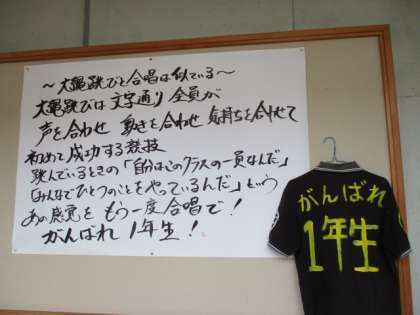 ～大縄跳びと合唱は似ている～
大縄跳びは 文字通り 全員が
声を合わせ 動きを合わせ 気持ちを合わせて
初めて成功する競技
跳んでいるときの「自分はこのクラスの一員なんだ」
「みんなでひとつのことをやっているんだ」という
あの感覚を もう一度合唱で！
がんばれ 1年生！
がんばれ
1年生